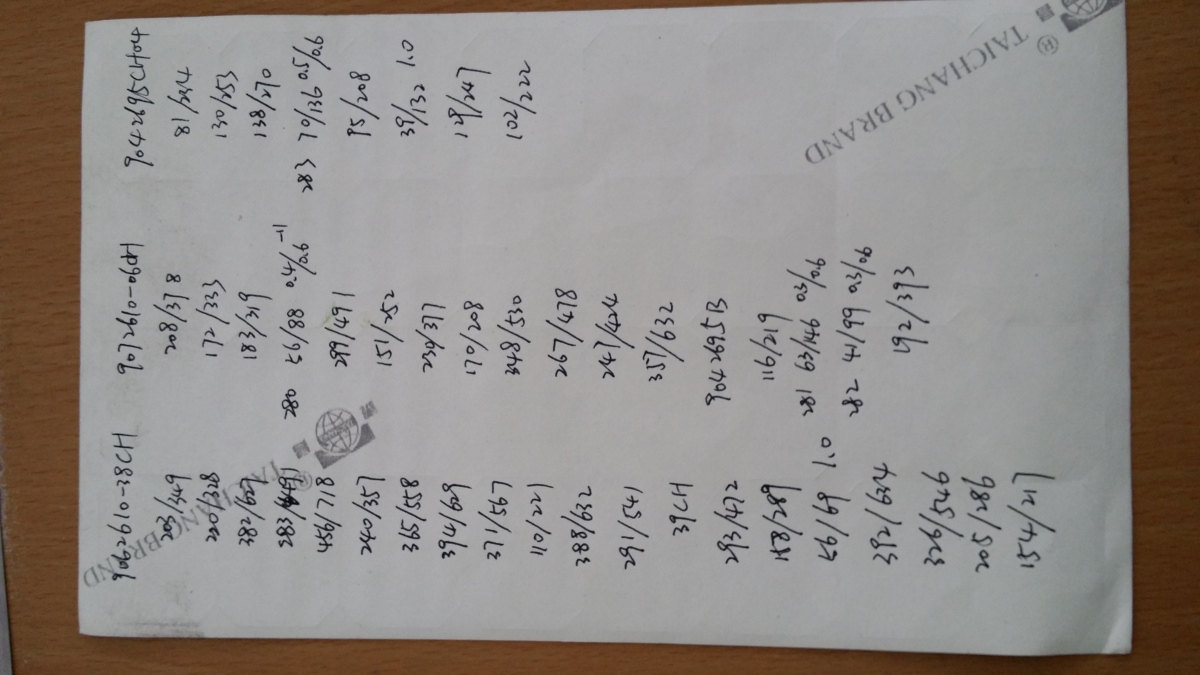 9062610-38CH
203/349
220/328
382/607
283/491
456/718
240/357
365/558
394/609
371/567
110/221
388/632
291/541
39CH
293/472
158/289
56/69 1.0
392/624
326/546
205/286
154/217
9072610-06CH
208/378
172/333
183/319
280 56/88 0.4/0.6 -11
289/491
151/252
230/377
170/208
348/530
267/478
247/424
357/632
9042695B
116/219
281 63/146 0.3/0.6
282 41/99 0.3/0.6
192/393
9042695CH04
81/234
130/253
138/270
283 70/136 0.5/0.6
95/208
39/132 1.0
129/247
102/222
TAICHANG BRAND
®
TAICHANG BRAND
®